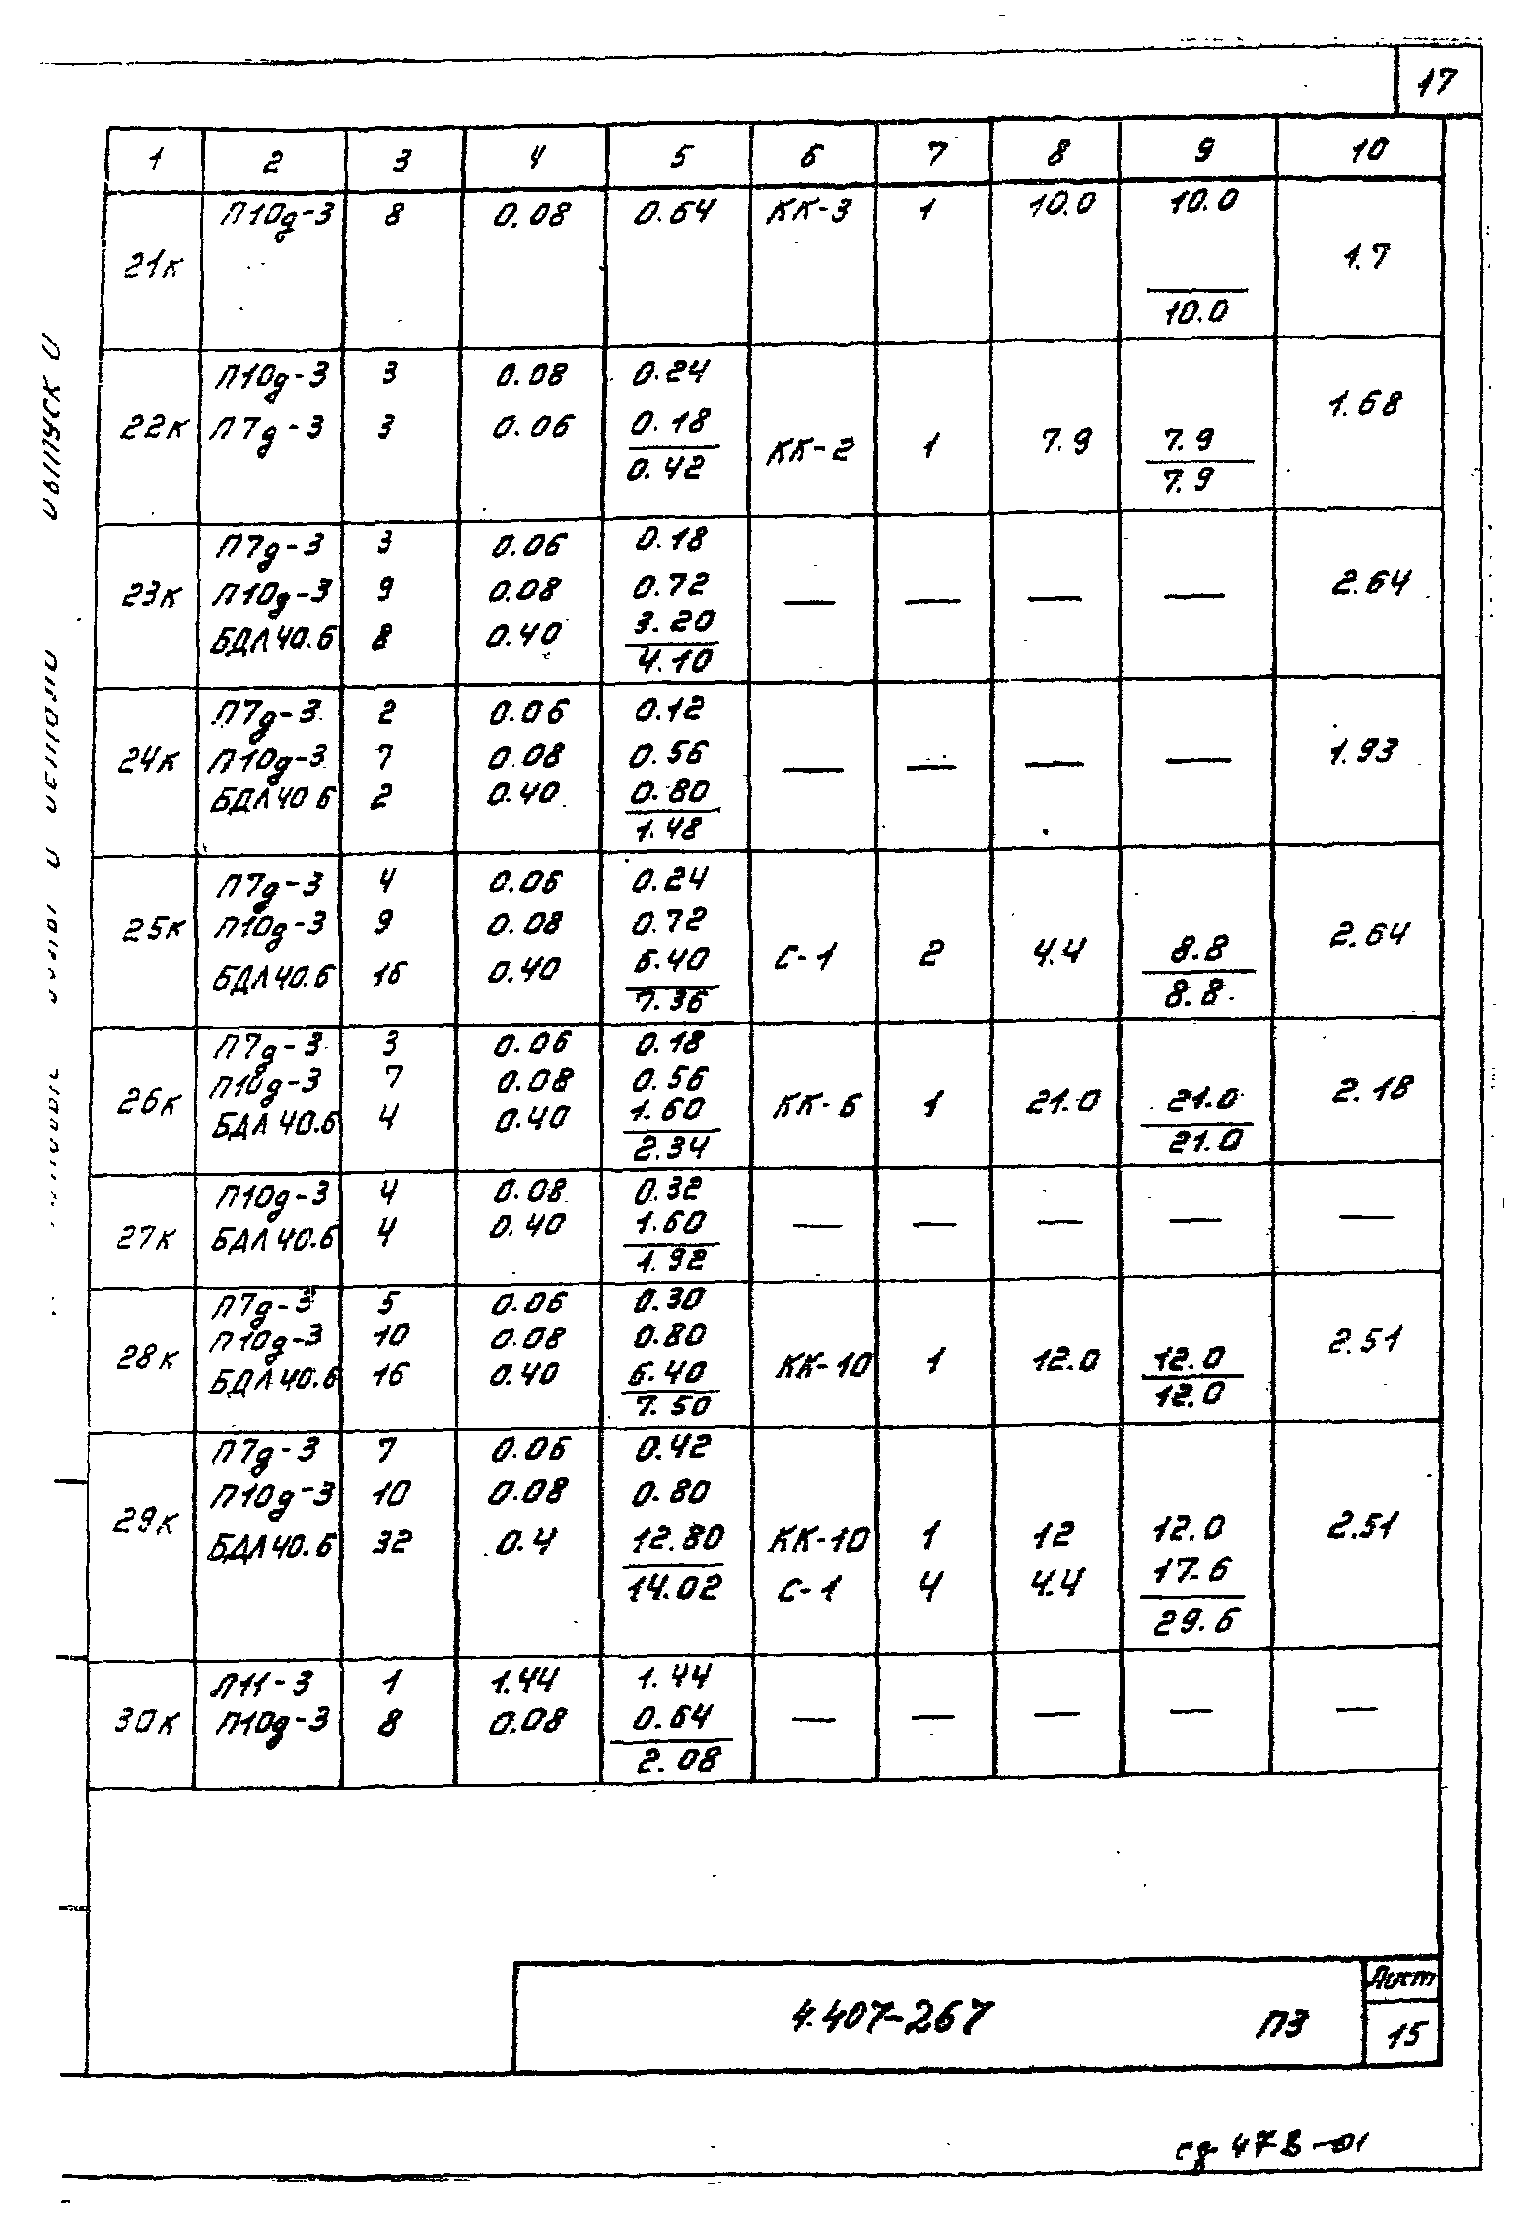 17
1 2 3 4 5 6 7 8 9 10
21к
П10д-3 8 0.08 0.64 КК-3 1 10.0 10.0
1.7
10.0
22к
П10д-3 3 0.08 0.24
1.68
П7д-3 3 0.06 0.18
КК-2 1 7.9 7.9
0.42 7.9
23к
П7д-3 3 0.06 0.18
П10д-3 9 0.08 0.72 — — — — 2.64
БДЛ40.6 8 0.40 3.20
4.10
24к
П7д-3 2 0.06 0.12
П10д-3 7 0.08 0.56 — — — — 1.93
БДЛ40 6 2 0.40 0.80
1.48
25к
П7д-3 4 0.06 0.24
П10д-3 9 0.08 0.72 2.64
БДЛ40.6 16 0.40 6.40 С-1 2 4.4 8.8
7.36 8.8
26к
П7д-3 3 0.06 0.18
П10д-3 7 0.08 0.56 2.18
БДЛ40.6 4 0.40 1.60 КК-6 1 21.0 21.0
2.34 21.0
27к
П10д-3 4 0.08 0.32
БДЛ40.6 4 0.40 1.60 — — — — —
1.92
28к
П7д-3 5 0.06 0.30
П10д-3 10 0.08 0.80 2.51
БДЛ40.6 16 0.40 6.40 КК-10 1 12.0 12.0
7.50 12.0
29к
П7д-3 7 0.06 0.42
П10д-3 10 0.08 0.80
БДЛ40.6 32 0.4 12.80 КК-10 1 12 12.0 2.51
14.02 С-1 4 4.4 17.6
29.6
30к
П11-3 1 1.44 1.44
П10д-3 8 0.08 0.64 — — — — —
2.08
4.407-267 ПЗ
Лист
15
сд 478-01
Выпуск 0